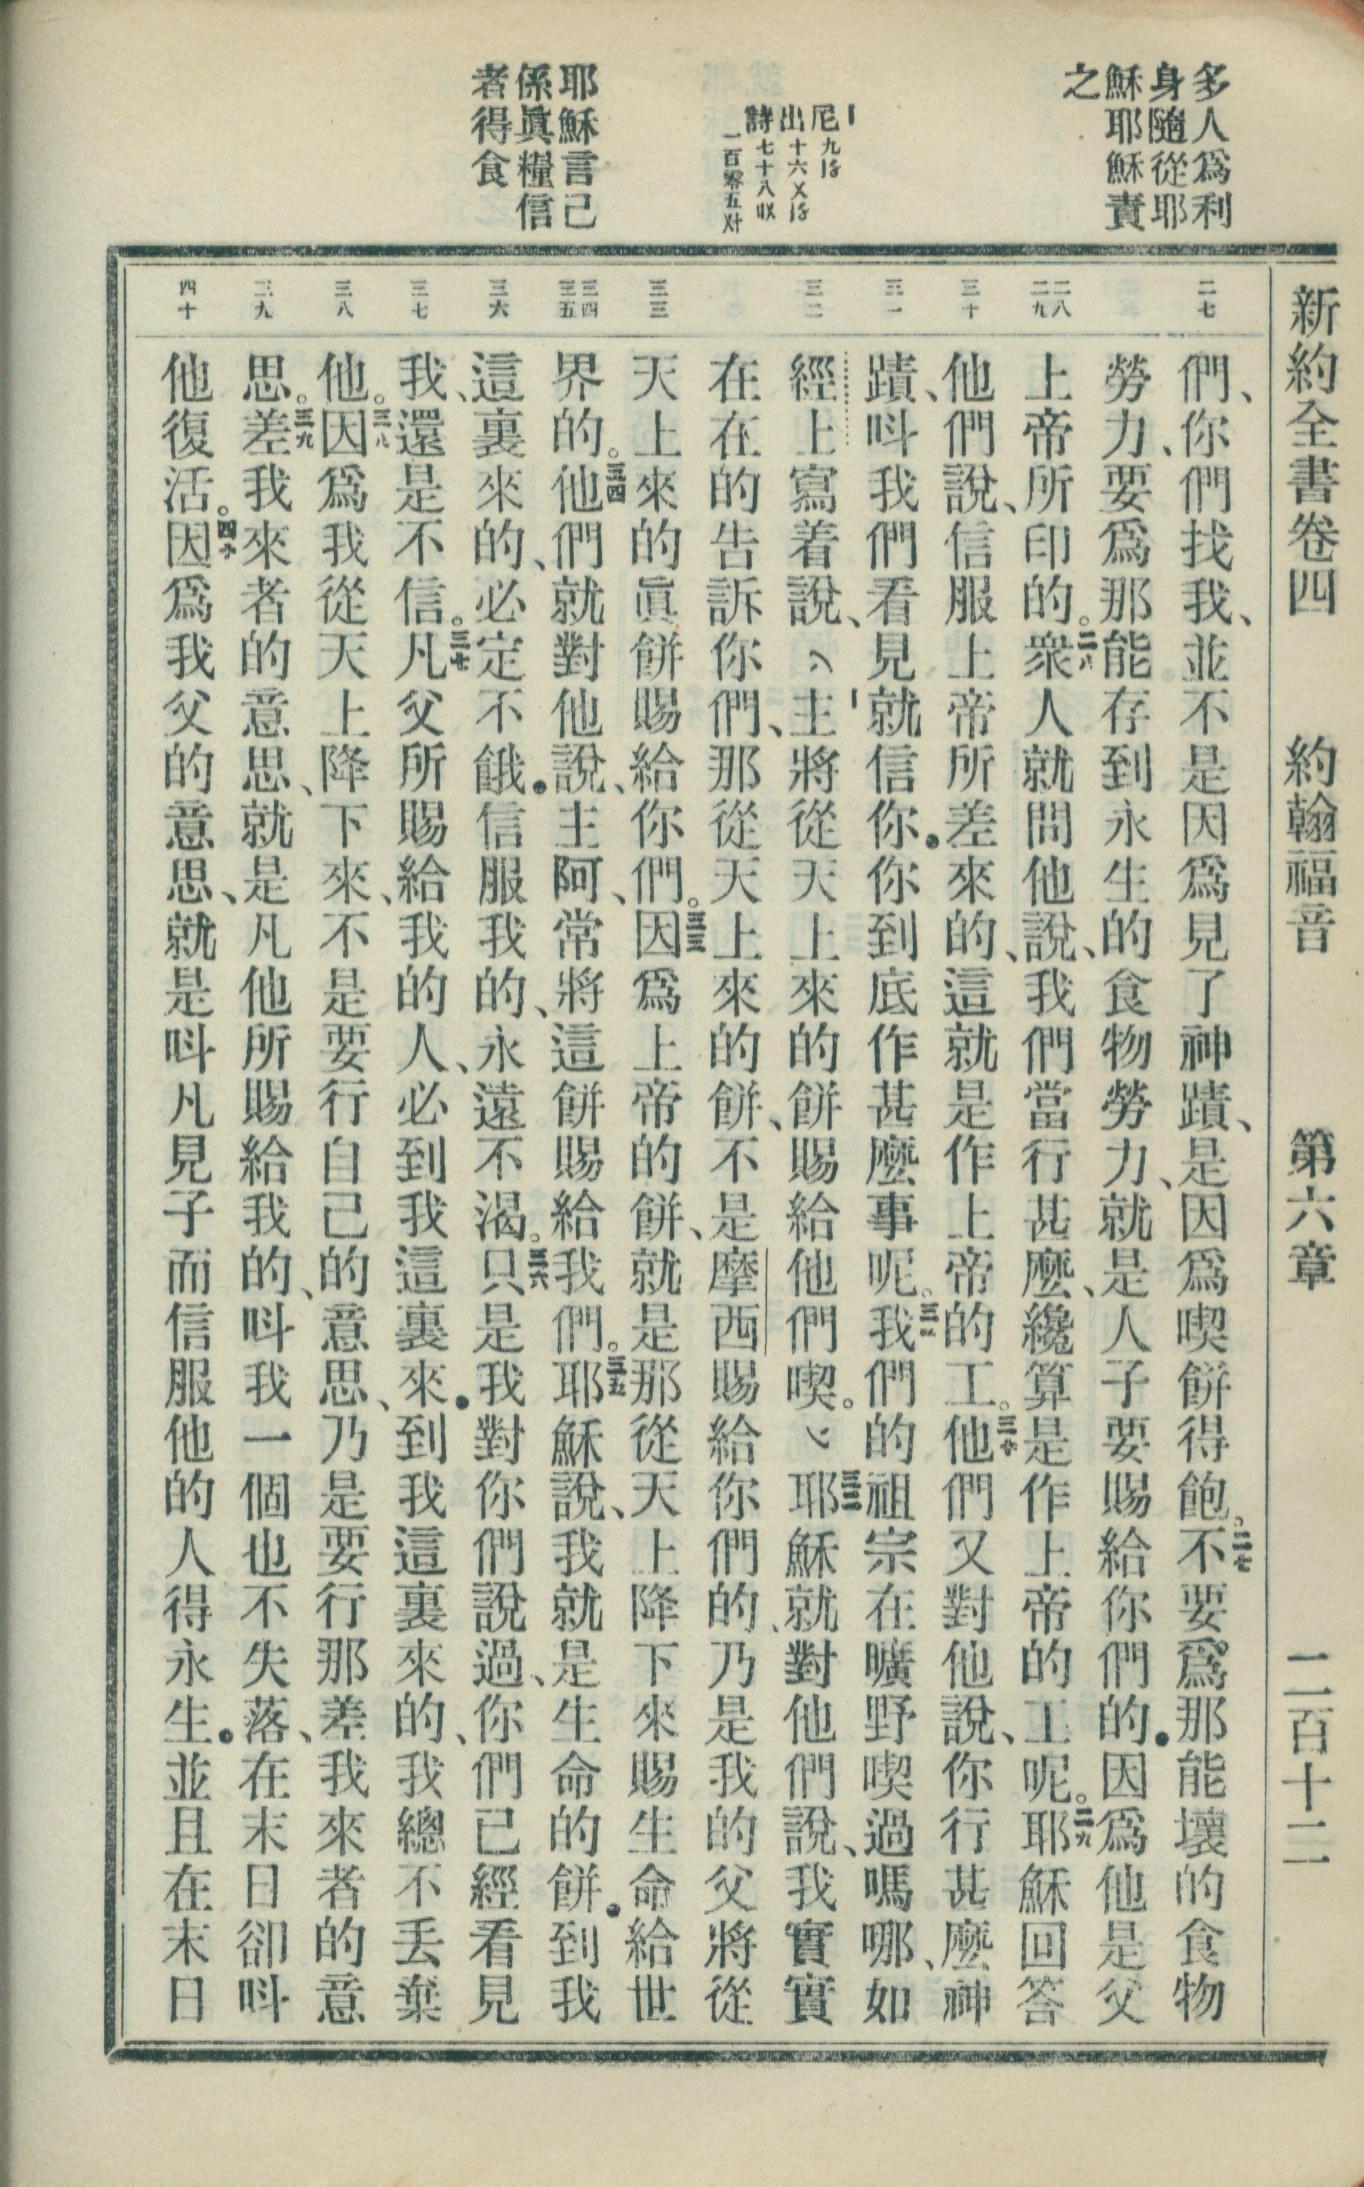 新約全書卷四 約翰福音 第六章 二百十二
多人爲利
身隨從耶
穌耶穌責
之
尼九
出十六
詩七十八
一百零五
耶穌言己
係眞糧信
者得食
二七
二八
二九
三十
三一
三二
三三
三四
三五
三六
三七
三八
三九
四十
們、你們找我、並不是因爲見了神蹟、是因爲喫餅得飽。二七不要爲那能壞的食物
勞力、要爲那能存到永生的食物勞力、就是人子要賜給你們的.因爲他是父
上帝所印的。二八衆人就問他說、我們當行甚麼、纔算是作上帝的工呢。二九耶穌回答
他們說、信服上帝所差來的、這就是作上帝的工。三十他們又對他說、你行甚麼神
蹟、呌我們看見就信你.你到底作甚麼事呢。三一我們的祖宗在曠野喫過嗎哪、如
經上寫着說、主將從天上來的餅賜給他們喫。三二耶穌就對他們說、我實實
在在的告訴你們、那從天上來的餅、不是摩西賜給你們的、乃是我的父將從
天上來的眞餅賜給你們。三三因爲上帝的餅、就是那從天上降下來賜生命給世
界的。三四他們就對他說、主阿、常將這餅賜給我們。三五耶穌說、我就是生命的餅.到我
這裏來的、必定不餓.信服我的、永遠不渴。三六只是我對你們說過、你們已經看見
我、還是不信。三七凡父所賜給我的人、必到我這裏來.到我這裏來的、我總不丟棄
他。三八因爲我從天上降下來、不是要行自己的意思、乃是要行那差我來者的意
思。三九差我來者的意思、就是凡他所賜給我的、呌我一個也不失落、在末日卻呌
他復活。四十因爲我父的意思、就是呌凡見子而信服他的人得永生.並且在末日